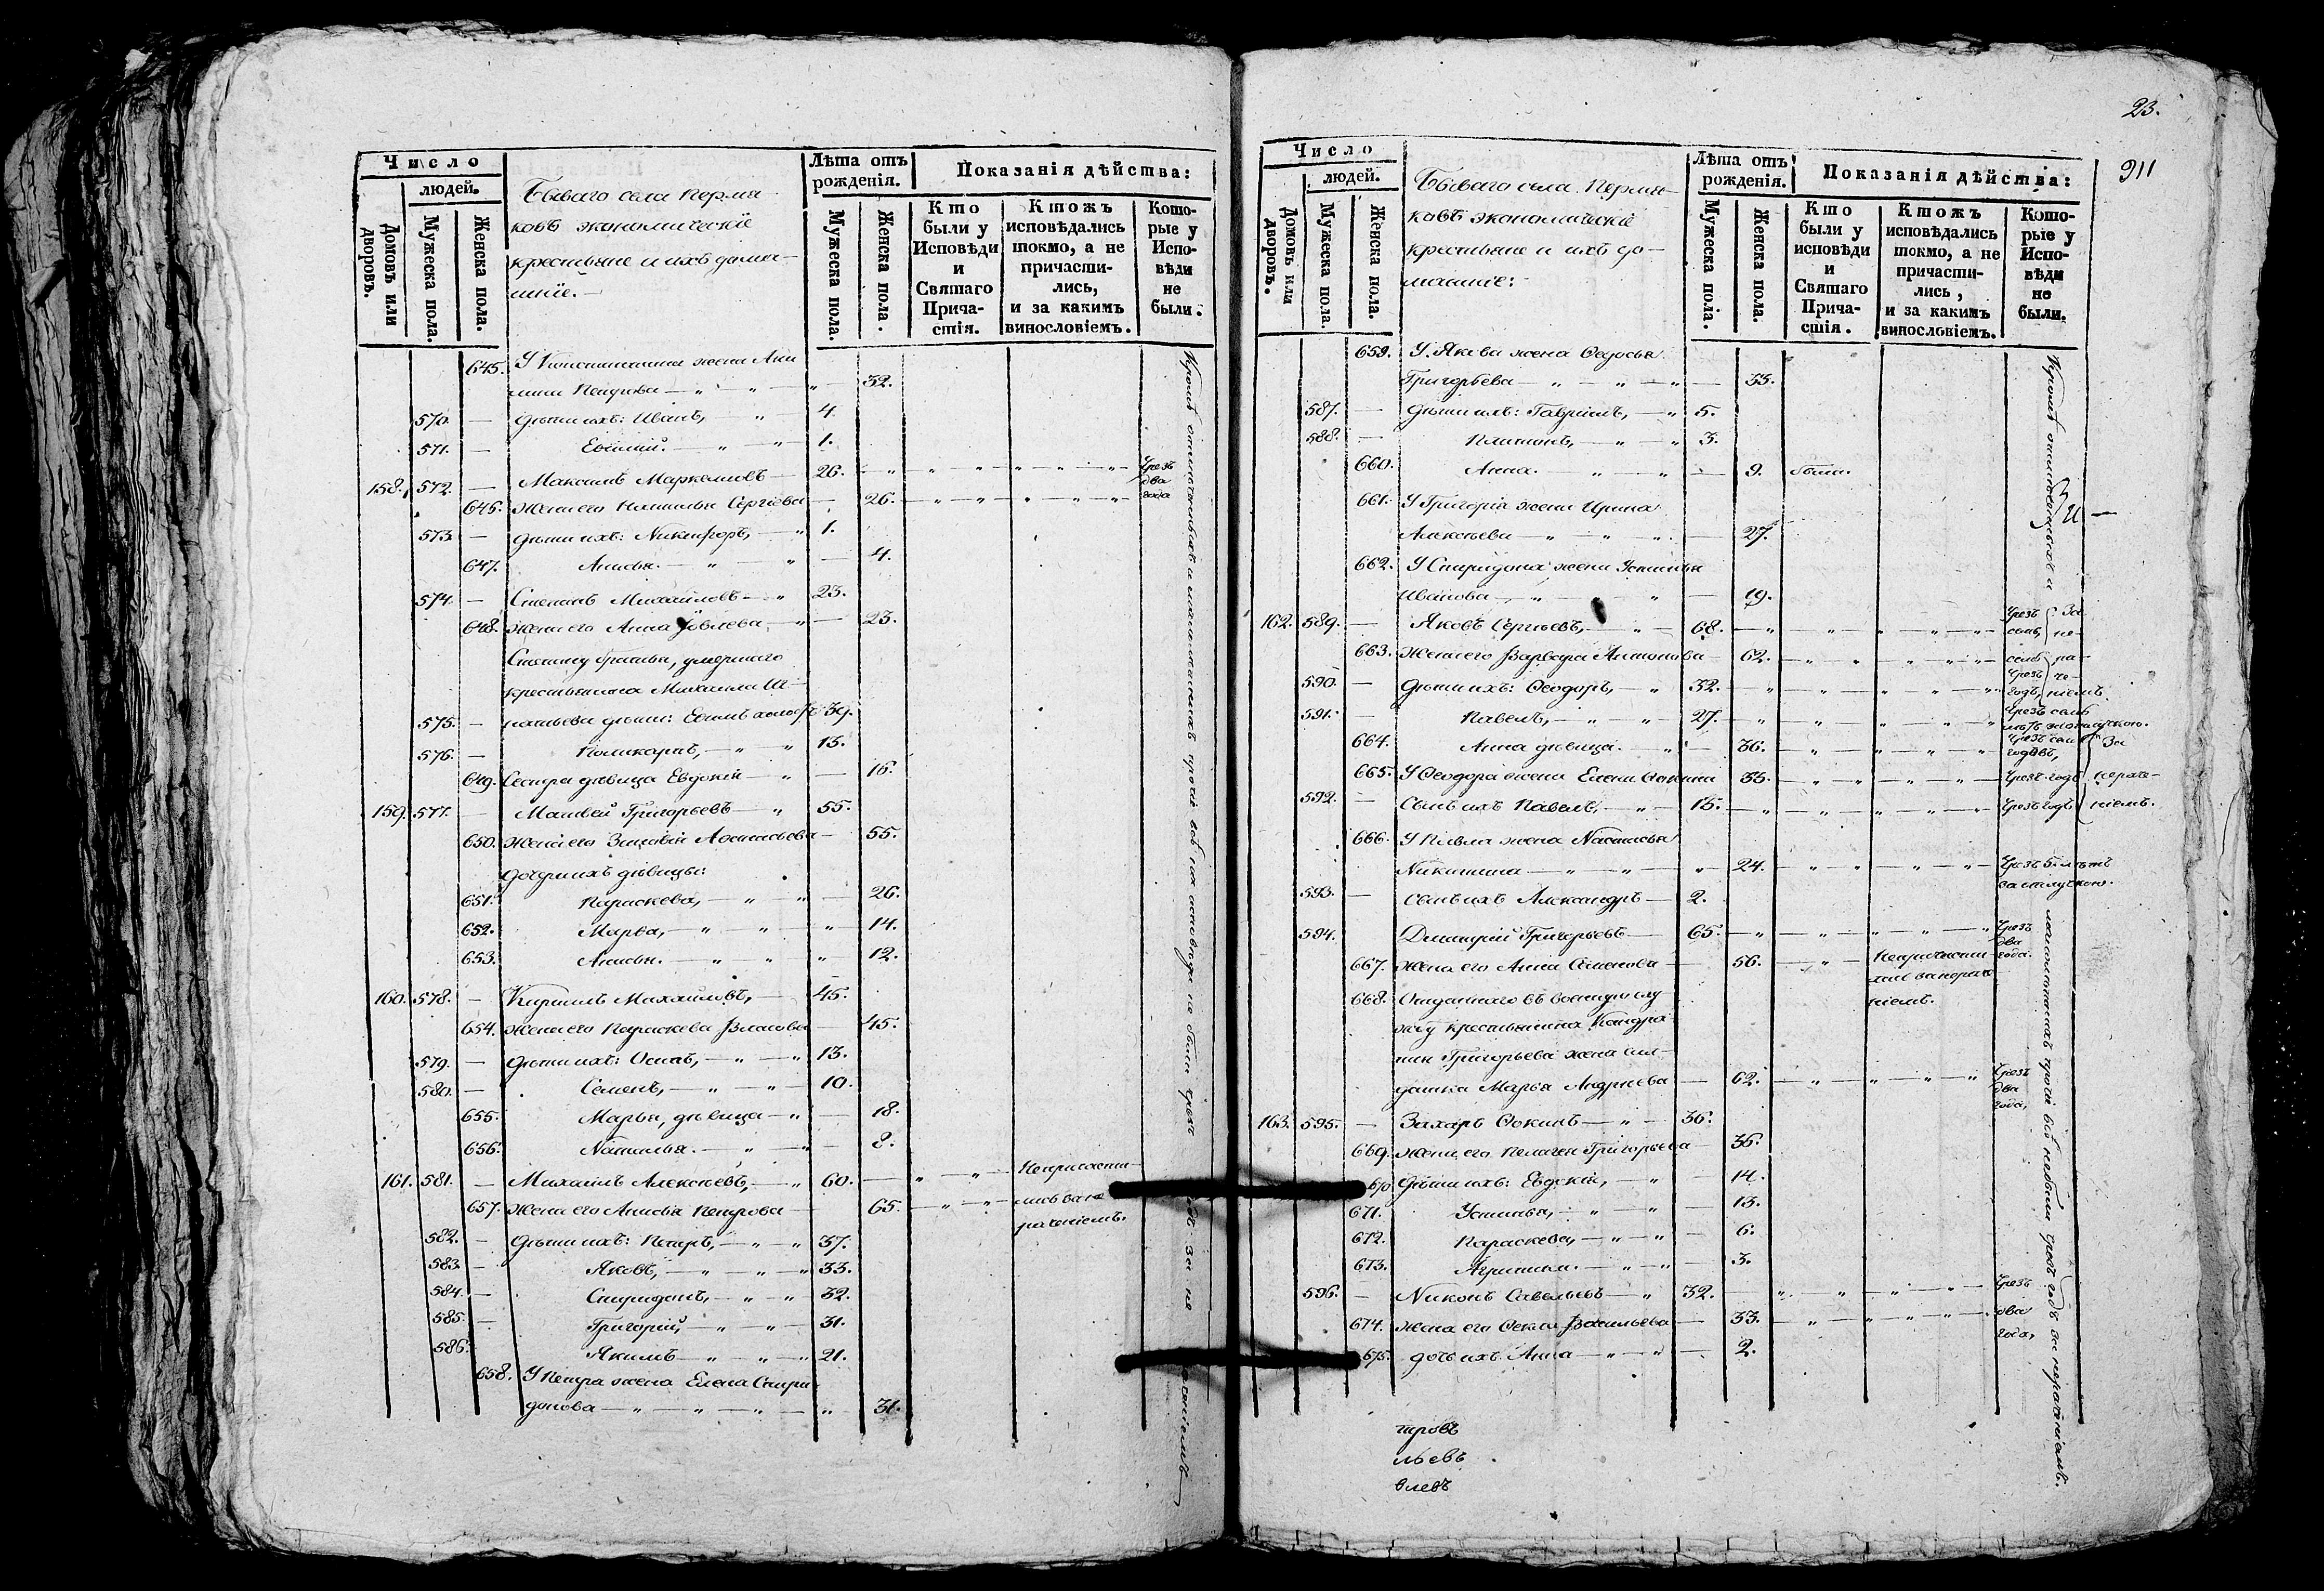 Число
людей.
Домовъ или дворовъ.
Мужеска пола.
Женска пола.
Бывшаго села Пермя-
ковъ экономическіе
крестьяне и ихъ дома-
шніе.—
Лѣта отъ
рожденія.
Мужеска пола.
Женска пола.
Показанія дѣйства:
Кто
были у
Исповѣди
и
Святаго
Прича-
стія.
Ктожъ
исповѣдались
токмо, а не
причасти-
лись,
и за какимъ
винословіемъ.
Кото-
рые у
Испо-
вѣди
не
были.
645. У Константина жена Ани-
Петрова — 32.
570. — Дѣти ихъ: Иванъ, 4.
571. — Евѳимій. 1.
158. 572. — Максимъ Маркелловъ 26. Чрезъ
два
646. Жена его Наталья Сергіева — 26. года
573. — Дѣти ихъ: Никифоръ, 1.
647. Анисья. — 4.
574. — Степанъ Михайловъ 23.
648. Жена его Анна Іовлева — 23.
Степану братья, умершаго
крестьянина Михаила
575. — дѣти: 39.
576. — Поликарпъ, 15.
649. Сестра дѣвица Евдокія — 16.
159. 577. — Матвей Григорьевъ 55.
650. Жена его Зиновія Аѳанасьева — 55.
Дочери ихъ дѣвицы:
651. Параскева, — 26.
652. Марѳа, 14.
653. Анисья. 12.
160. 578. — Кирилъ Михайловъ, 45.
654. Жена его Параскева Власова — 45.
579. — Дѣти ихъ: Осипъ, 13.
580. — Семенъ, 10.
655. Марья, дѣвица — 18.
656. Наталья. — 8.
161. 581. — Михаилъ Алексѣевъ, 60. Непричасти-
657. Жена его Анисья Петрова — 65. лись за не-
раченіемъ.
582. — Дѣти ихъ: Петръ, 37.
583. — Яковъ, 33.
584. — Спиридонъ, 32.
585. — Григорій, 31.
586. Якимъ 21.
658. У Петра жена Елена Спири-
донова 31.
23.
911
Число
людей.
Домовъ или дворовъ.
Мужеска пола.
Женска пола.
Бывшаго села Пермя-
ковъ экономическіе
крестьяне и ихъ до-
машніе:
Лѣта отъ
рожденія.
Мужеска пола.
Женска пола.
Показанія дѣйства:
Кто
были у
исповѣди
и
Святаго
Прича-
стія.
Ктожъ
исповѣдались
токмо, а не
причасти-
лись,
и за какимъ
винословіемъ.
Кото-
рые у
Испо-
вѣди
не
были.
659. У Якова жена Ѳедосья
Григорьева — 33.
587. — Дѣти ихъ: Гавріилъ, 5.
588. — Платонъ, 3.
660. Анна. — 9. была.
661. У Григорія жена Ирина
Алексѣева — 27.
662. У Спиридона жена Устинья
Иванова — 19.
162. 589. — Яковъ Сергѣевъ, 68. Чрезъ За
семь не-
663. Жена его Варвара Антонова — 62. семь ра-
590. — Дѣти ихъ: Ѳеодоръ, 32. Чрезъ че-
годъ, ніемъ.
591. — Павелъ, 27. Чрезъ семь
лѣтъ за отлучкою.
664. Анна дѣвица. — 36. Чрезъ семь За
годовъ,
665. У Ѳеодора жена Елена Ѳокина 35. Чрезъ годъ нераче-
592. — Сынъ ихъ Павелъ, 15. Чрезъ годъ ніемъ.
666. У Павла жена Настасья
Никитина 24. Чрезъ
за отлучкою.
593. — Сынъ ихъ Александръ 2.
594. Дмитрій Григорьевъ 65. Чрезъ
два
667. Жена его Анна Семенова 56. Непричасти- года.
лась за нерач-
668. Отданнаго въ военную слу- ніемъ.
жбу крестьянина Кондра-
тія Григорьева жена сол-
датка Марья Андреева — 62. Чрезъ
два
года,
163. 595. — Захаръ Ѳокинъ 36.
669. Жена его Пелагея Григорьева 36.
670 Дѣти ихъ: Евдокія, — 14.
671. Устинья, — 13.
672. Параскева, — 6.
673. Агрипина. — 3.
596. — Никонъ Савельевъ 32. Чрезъ
674. Жена его Ѳекла Васильева — 33. два
года,
675. Дочь ихъ Анна — 2.
тровъ
льевъ
влевъ